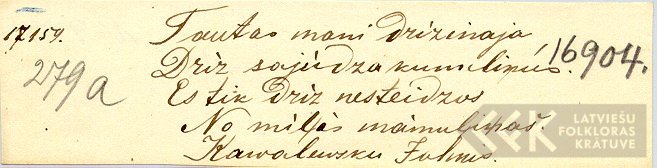 17159.
Tautas mani drizinaja
16904.
279a
Driz sajúdza kumelinús.
Es tik driz nesteidzos
No mīļás mámuliņas.
Kawalewsku Jahnis.
LATVIEŠU
FOLKLORAS
KRĀTUVE